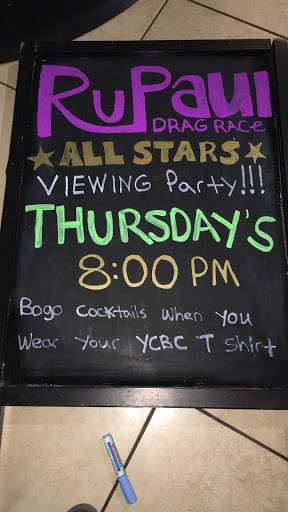 RuPaul
DRAG RACe
ALL STARS
VIEWING Party!!!
THURSDAY'S
8:00 PM
Bogo Cocktails When You
Wear Your YCBC T Shirt